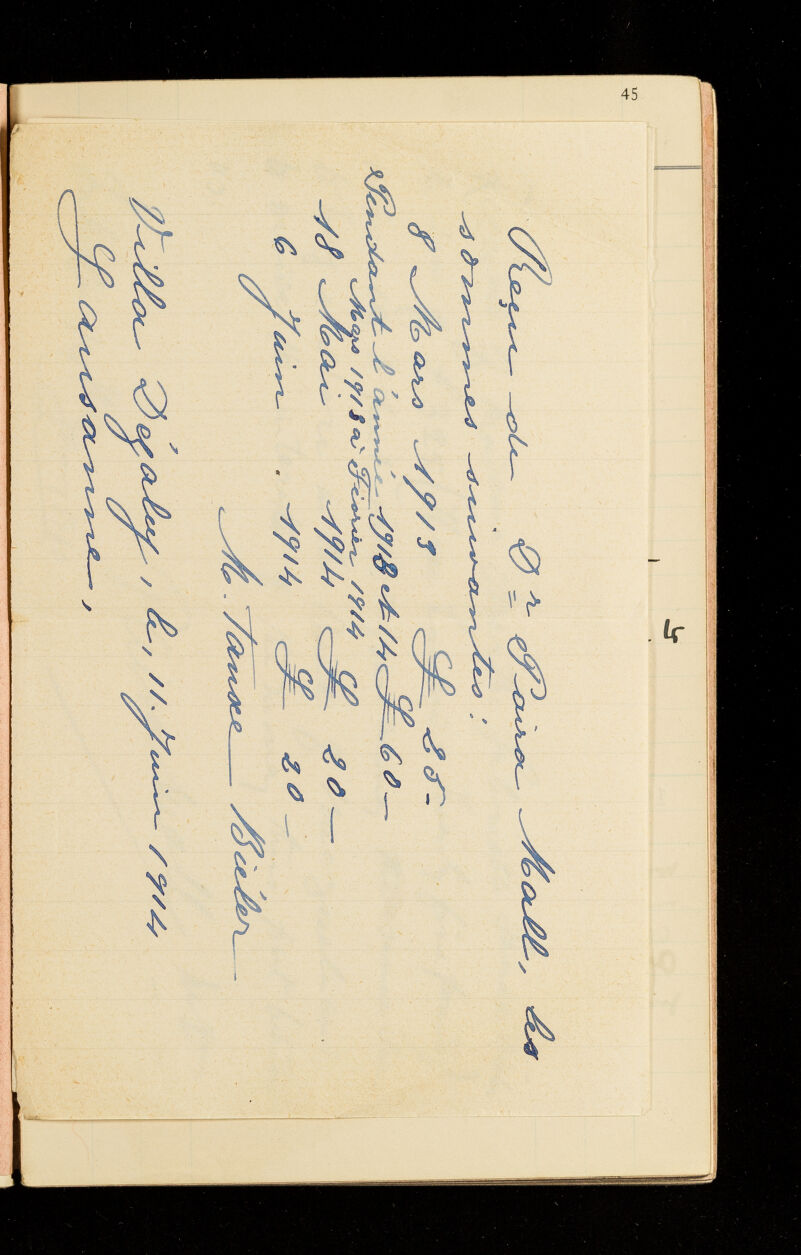 45
4
Reçu de Dr Paira Mall, les
sommes suivantes:
8 Mars 1913 £ 25-
Pendant l'année 1913 et 14 £ 60-
Mars 1913 à Février 1914
18 Mai 1914 £ 20-
6 Juin . 1914 £ 20-
M. Tanxe Bieler
Villa Dégaley, le, 11. Juin 1914
Lausanne,